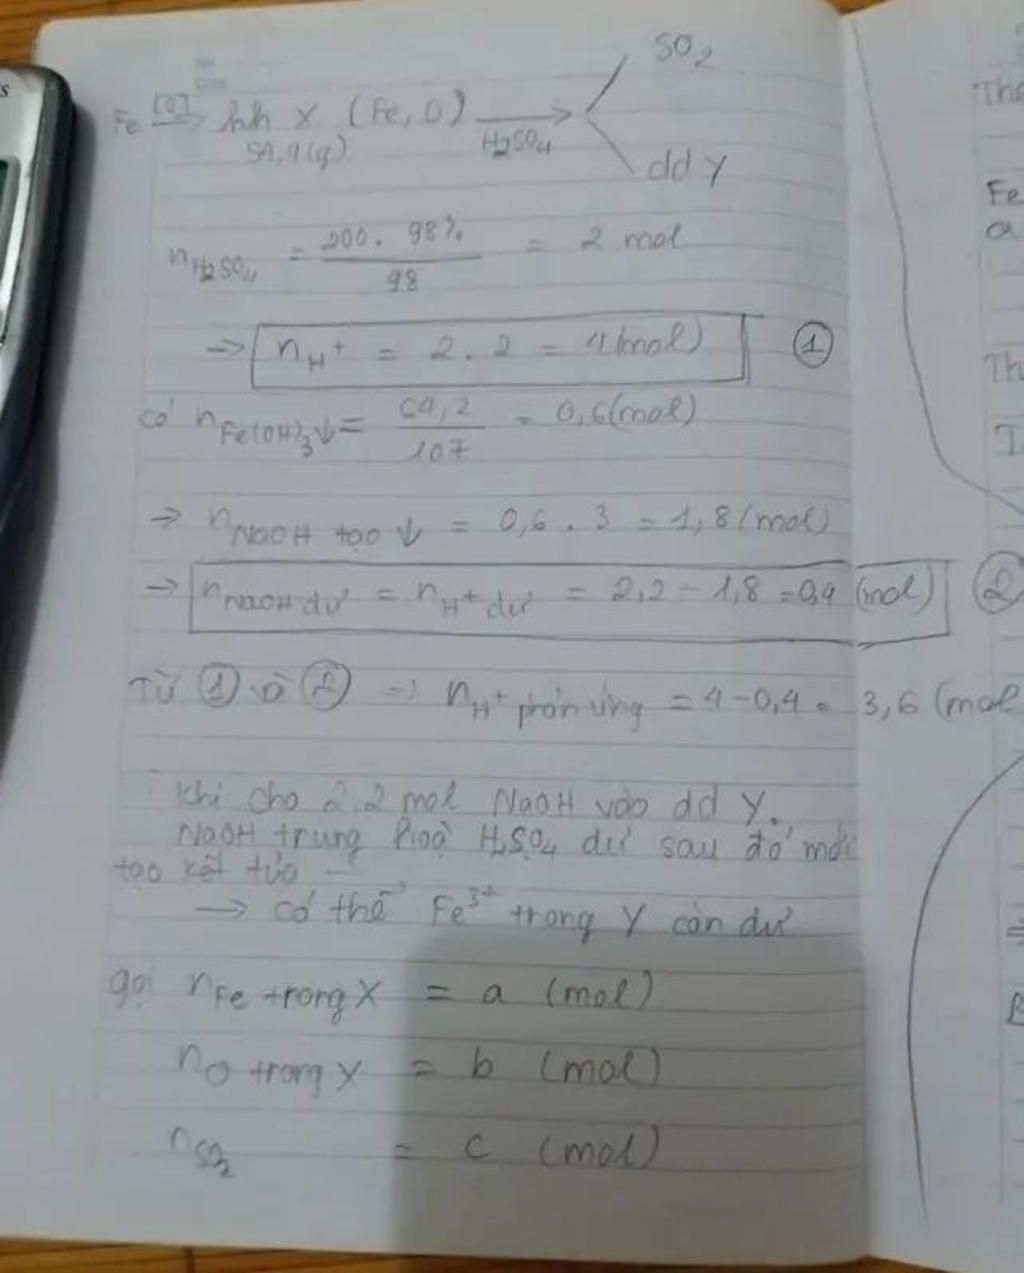 SO₂
Fe [O]→ hh X (Fe, O) →
51,4(g) H₂SO₄
dd Y
n H₂SO₄ = 200. 98% / 98 = 2 mol
→ n H⁺ = 2.2 = 4(mol) ①
có n Fe(OH)₃↓ = 64,2 / 107 = 0,6(mol)
→ n NaOH tạo ↓ = 0,6.3 = 1,8(mol)
→ n NaOH dư = n H⁺ dư = 2,2 - 1,8 = 0,4 (mol) ②
Từ ① và ② → n H⁺ phản ứng = 4 - 0,4 = 3,6 (mol
Khi cho 2,2 mol NaOH vào dd Y.
NaOH trung hoà H₂SO₄ dư sau đó mới
tạo kết tủa
→ có thể Fe³⁺ trong Y còn dư
gọi n Fe trong X = a (mol)
n O trong X = b (mol)
n SO₂ = c (mol)
Fe
a
Th